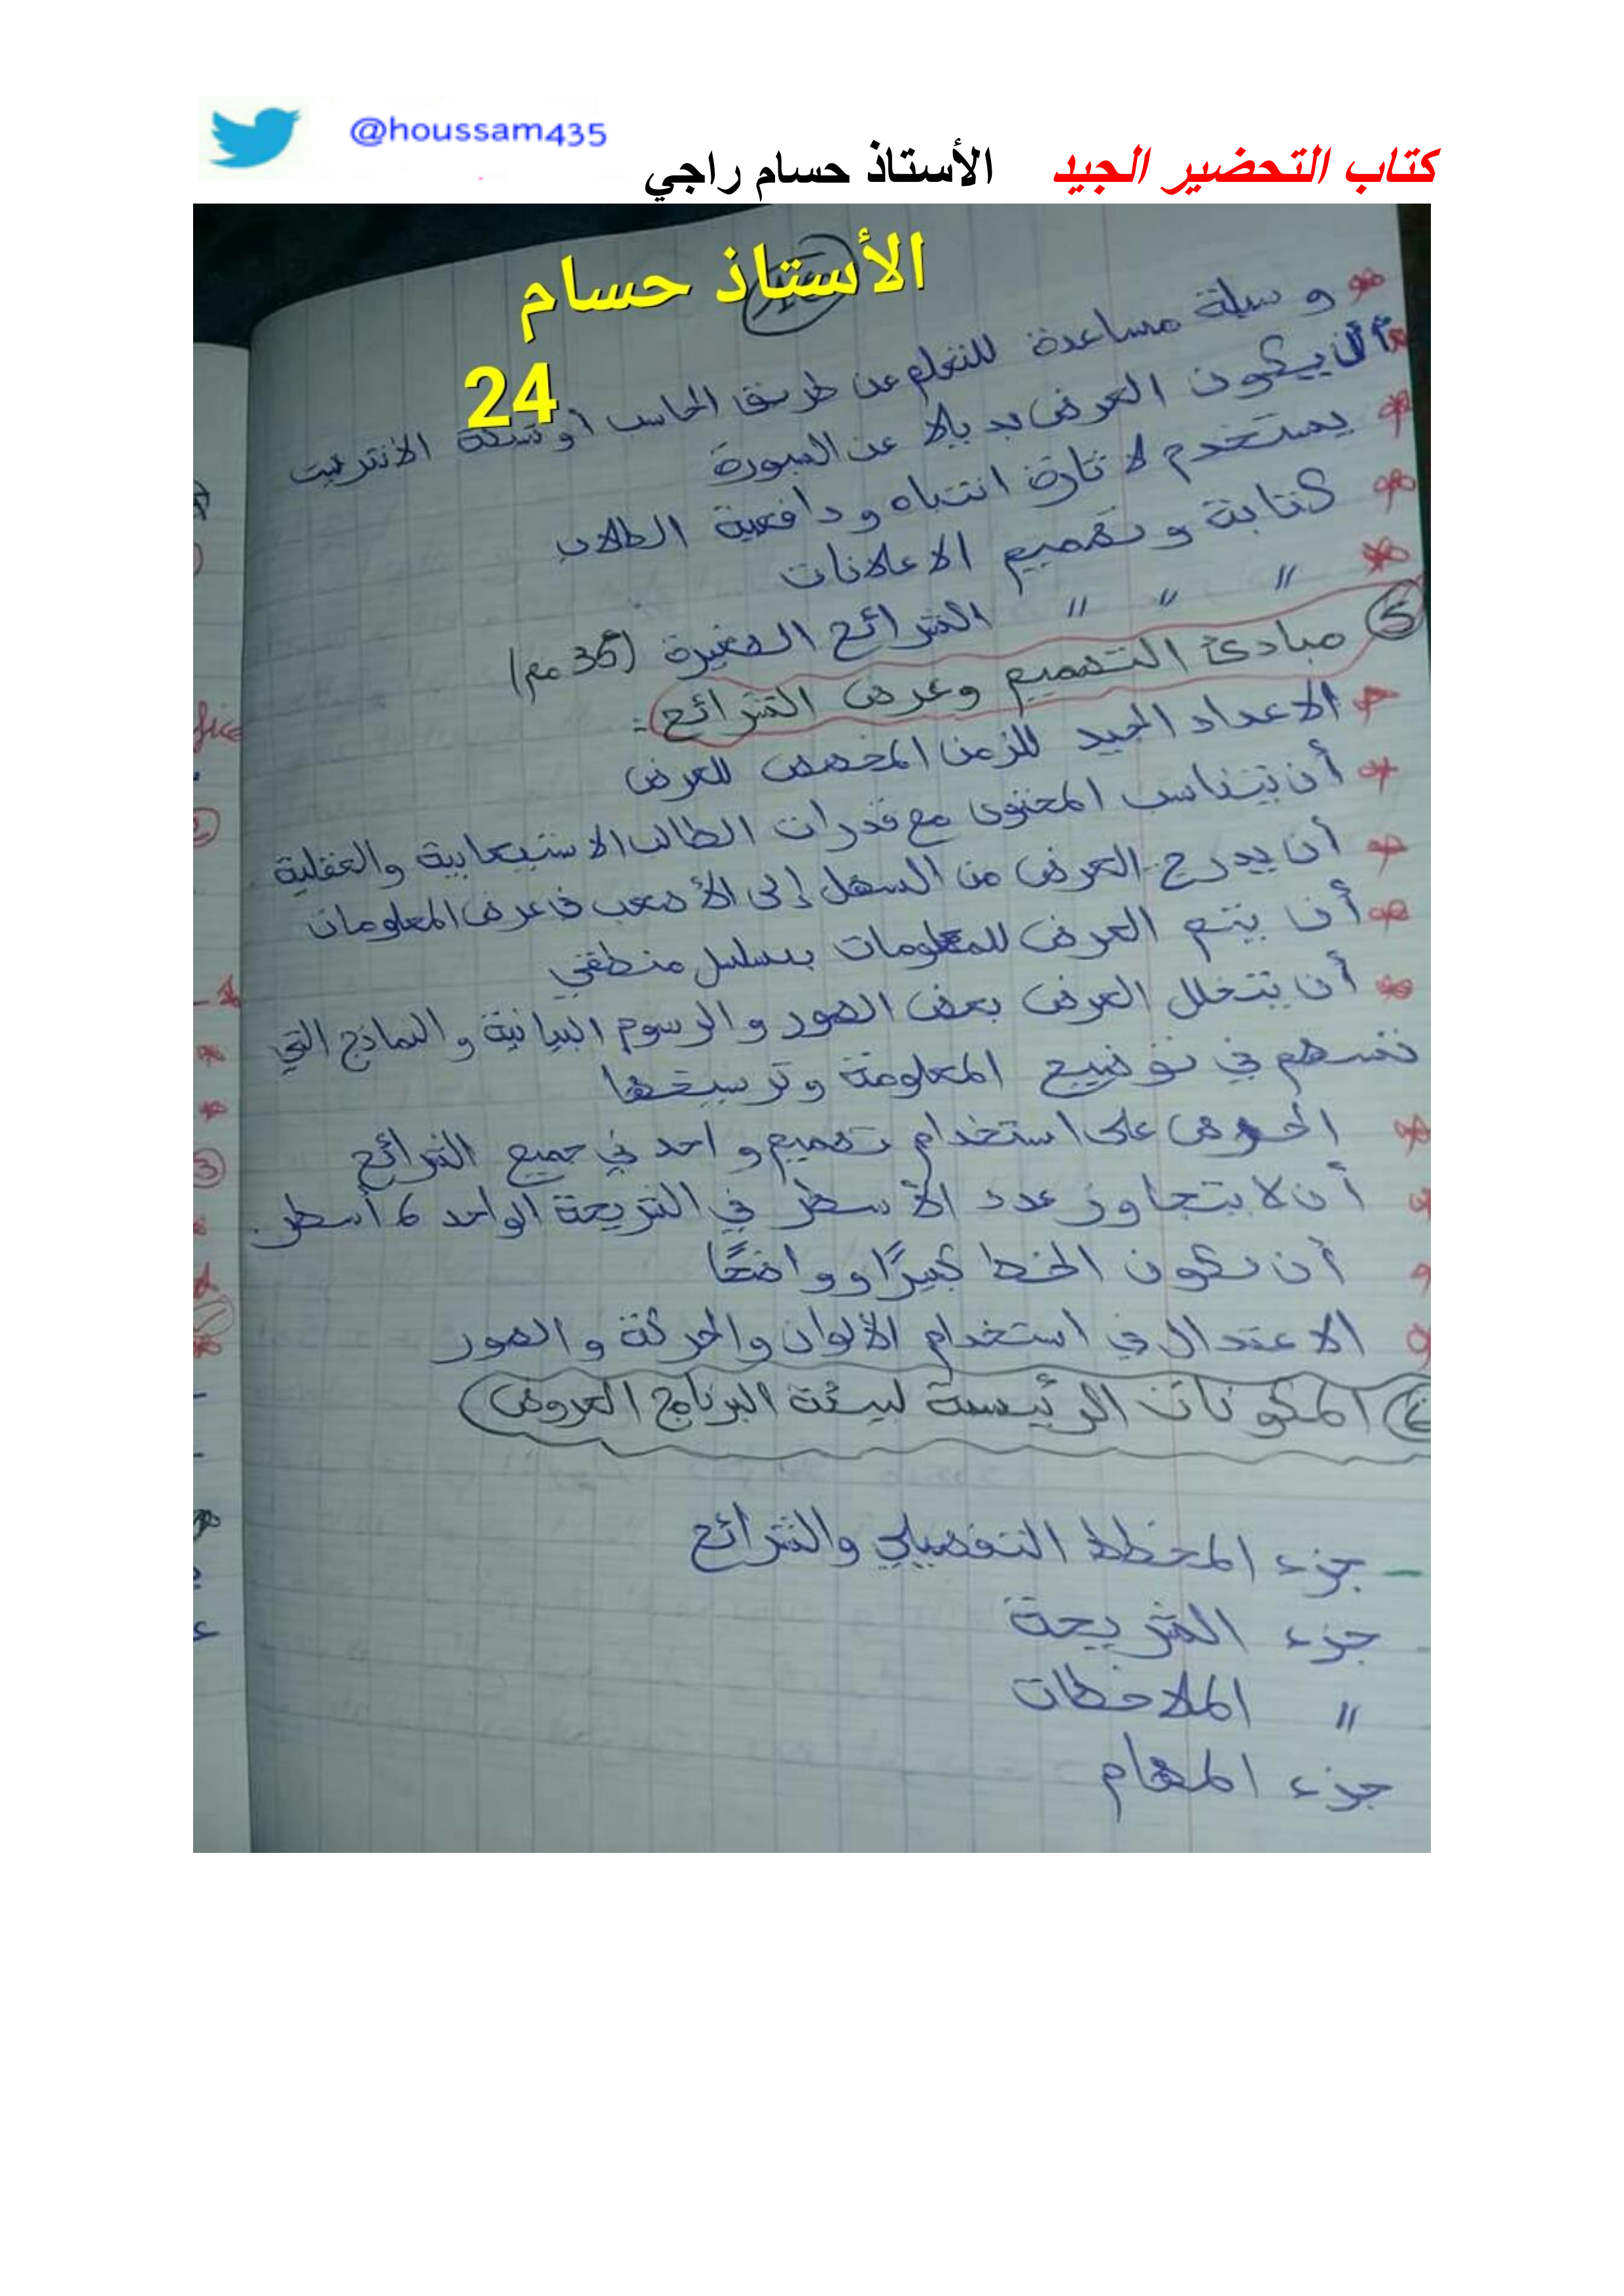 @houssam435
كتاب التحضير الجيد الأستاذ حسام راجي
الأستاذ حسام
24
* وسيلة مساعدة للتعلم عن طريق الحاسب أو شبكة الانترنيت
* أن يكون العرض بديلا عن السبورة
* يستخدم لاثارة انتباه ودافعية الطلاب
* كتابة وتصميم الاعلانات
* " " " الشرائح الصغيرة (35 مم)
5 مبادئ التصميم وعرض الشرائح :
* الاعداد الجيد للزمن المخصص للعرض
* أن يتناسب المحتوى مع قدرات الطالب الاستيعابية والعقلية
* أن يدرج العرض من السهل إلى الأصعب في عرض المعلومات
* أن يتم العرض للمعلومات بتسلسل منطقي
* أن يتخلل العرض بعض الصور والرسوم البيانية والنماذج التي
تسهم في توضيح المعلومة وترسيخها
* الحرص على استخدام تصميم واحد في جميع الشرائح
* أن لا يتجاوز عدد الأسطر في الشريحة الواحد 6 أسطر.
* أن يكون الخط كبيرًا وواضحًا
* الاعتدال في استخدام الألوان والحركة والصور
6 المكونات الرئيسة لبيئة البرنامج العروض
- جزء المخطط التفصيلي والشرائح
- جزء الشريحة
" الملاحظات
جزء المهام